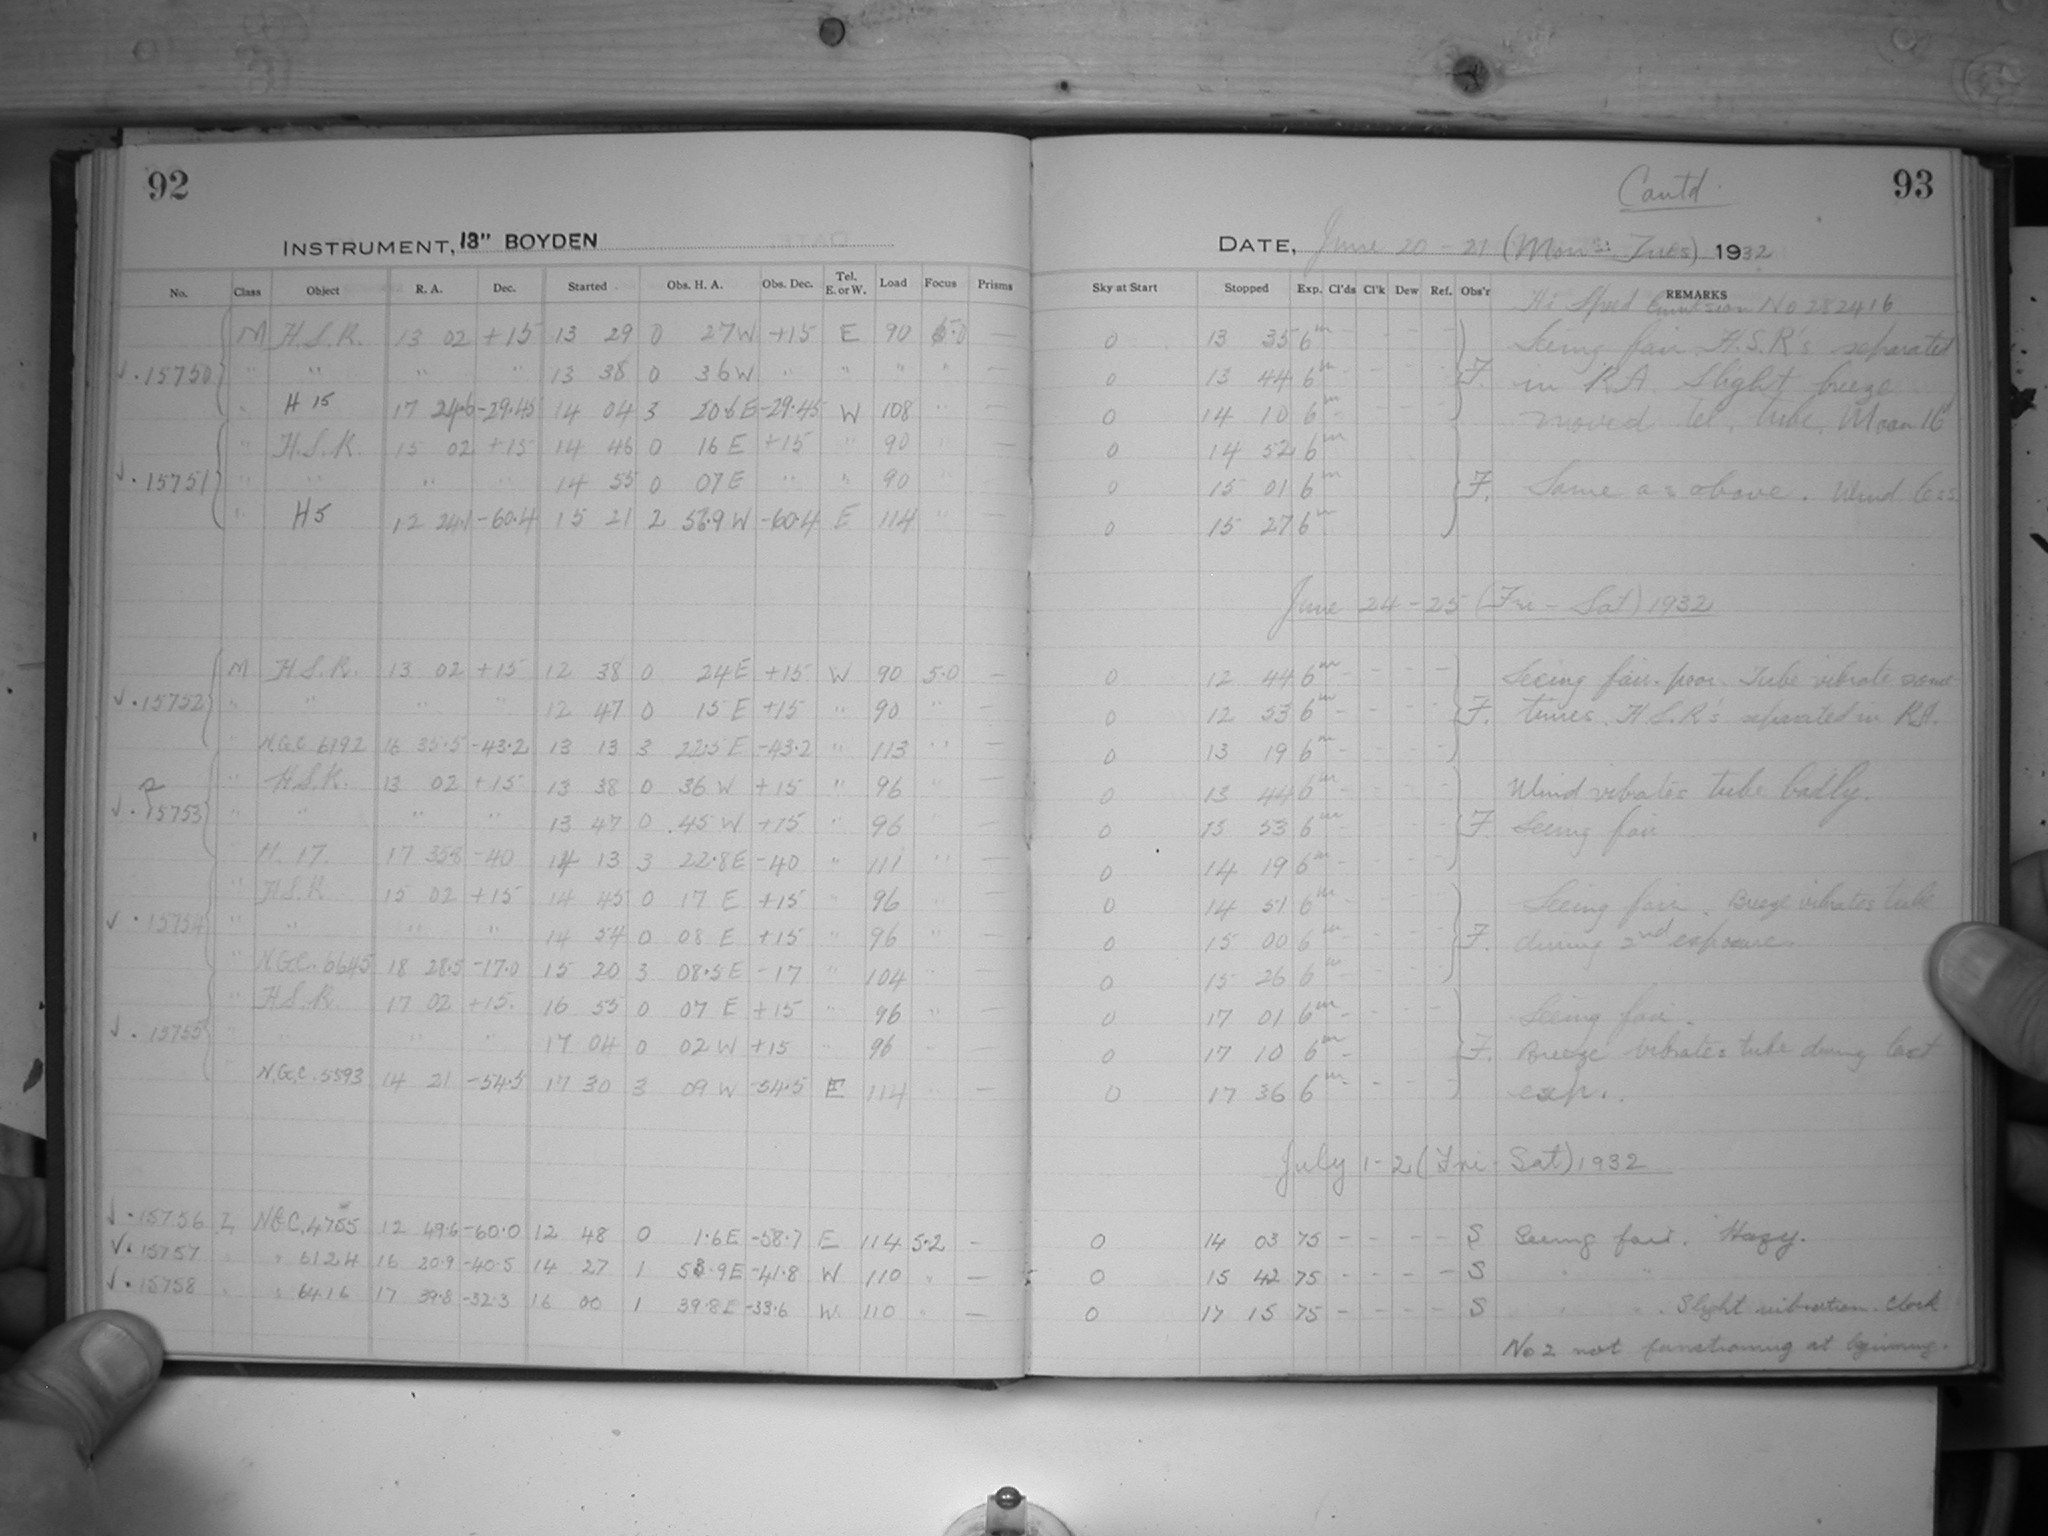 92
INSTRUMENT, 13" BOYDEN
No. Class Object R. A. Dec. Started Obs. H. A. Obs. Dec. Tel. E. or W. Load Focus Prisms
M H.S.R. 13 02 +15 13 29 0 27 W +15 E 90 5.0 —
√ . 15750 " " " " 13 38 0 36 W " " " " —
" H 15 17 24.6 -29.45 14 04 3 20.6 E -29.45 W 108 " —
" H.S.R. 15 02 +15 14 46 0 16 E +15 " 90 " —
√ . 15751 " " " " 14 55 0 07 E " " 90 " —
" H 5 12 24.1 -60.4 15 21 2 56.9 W -60.4 E 114 " —
M H.S.R. 13 02 +15 12 38 0 24 E +15 W 90 5.0 —
√ . 15752 " " " " 12 47 0 15 E +15 " 90 " —
" N.G.C 6192 16 35.5 -43.2 13 13 3 22.5 E -43.2 " 113 " —
" H.S.R. 13 02 +15 13 38 0 36 W +15 " 96 " —
√ . 15753 " " " " 13 47 0 45 W +15 " 96 " —
" H. 17. 17 35.8 -40 14 13 3 22.8 E -40 " 111 " —
" H.S.R 15 02 +15 14 45 0 17 E +15 " 96 " —
√ . 15754 " " " " 14 54 0 08 E +15 " 96 " —
" N.G.C. 6645 18 28.5 -17.0 15 20 3 08.5 E -17 " 104 " —
" H.S.R. 17 02 +15. 16 55 0 07 E +15 " 96 " —
√ . 15755 " " " " 17 04 0 02 W +15 " 96 - —
N.G.C. 5593 14 21 -54.5 17 30 3 09 W -54.5 E 114 " —
√ . 15756 L N.G.C. 4755 12 49.6 -60.0 12 48 0 1.6 E -58.7 E 114 5.2 —
√ . 15757 " " 6124 16 20.9 -40.5 14 27 1 53.9 E -41.8 W 110 " —
√ . 15758 " " 6416 17 39.8 -32.3 16 00 1 39.8 E -33.6 W 110 " —
Contd.
93
DATE, June 20 - 21 (Mon - Tues) 1932
Sky at Start Stopped Exp. Cl'ds Cl'k Dew Ref. Obs'r REMARKS
Hi Speed Emulsion No 282416
0 13 35 6m - - Seeing fair. H.S.R's separated
0 13 44 6m - - F. in RA Slight breeze
0 14 10 6m - - moved tel. tube. Moon 16d
0 14 52 6m
0 15 01 6m F. Same as above. Wind less
0 15 27 6m
June 24 - 25 (Fri - Sat) 1932
0 12 44 6m - - - - Seeing fair - poor. Tube vibrate some
0 12 53 6m - - - - F. times. H.S.R's separated in RA.
0 13 19 6m - - - -
0 13 44 6m - - - - Wind vibrates tube badly.
0 13 53 6m - - - - F. Seeing fair
0 14 19 6m - - - -
0 14 51 6m - - - - Seeing fair. Breeze vibrates tube
0 15 00 6m - - - - F. during 2nd exposure.
0 15 26 6m - - - -
0 17 01 6m - - - - Seeing fair.
0 17 10 6m - - - - F. Breeze vibrates tube during last
0 17 36 6m - - - - exp.
July 1 - 2 (Fri - Sat) 1932
0 14 03 75 - - - - S Seeing fair. Hazy.
0 15 42 75 - - - - S " "
0 17 15 75 - - - - S " " . Slight vibration. Clock
No 2 not functioning at beginning.